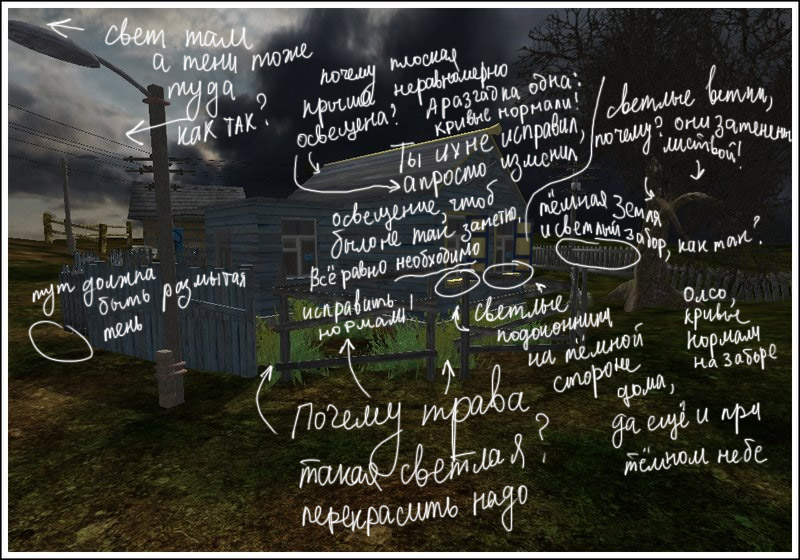 свет там
а тени тоже
туда
как так?
почему плоская
крыша неравномерно
освещена?
А разгадка одна:
кривые нормали!
Ты их не исправил,
а просто изменил
освещение, чтоб
было не так заметно,
Всё равно необходимо
исправить
нормали!
светлые ветки,
почему? они затенены
листвой!
тёмная земля
и светлый забор, как так?
тут должна
быть размытая
тень
светлые
подоконники
на тёмной
стороне
дома,
да ещё и при
тёмном небе
Олсо,
кривые
нормали
на заборе
Почему трава
такая светлая?
перекрасить надо